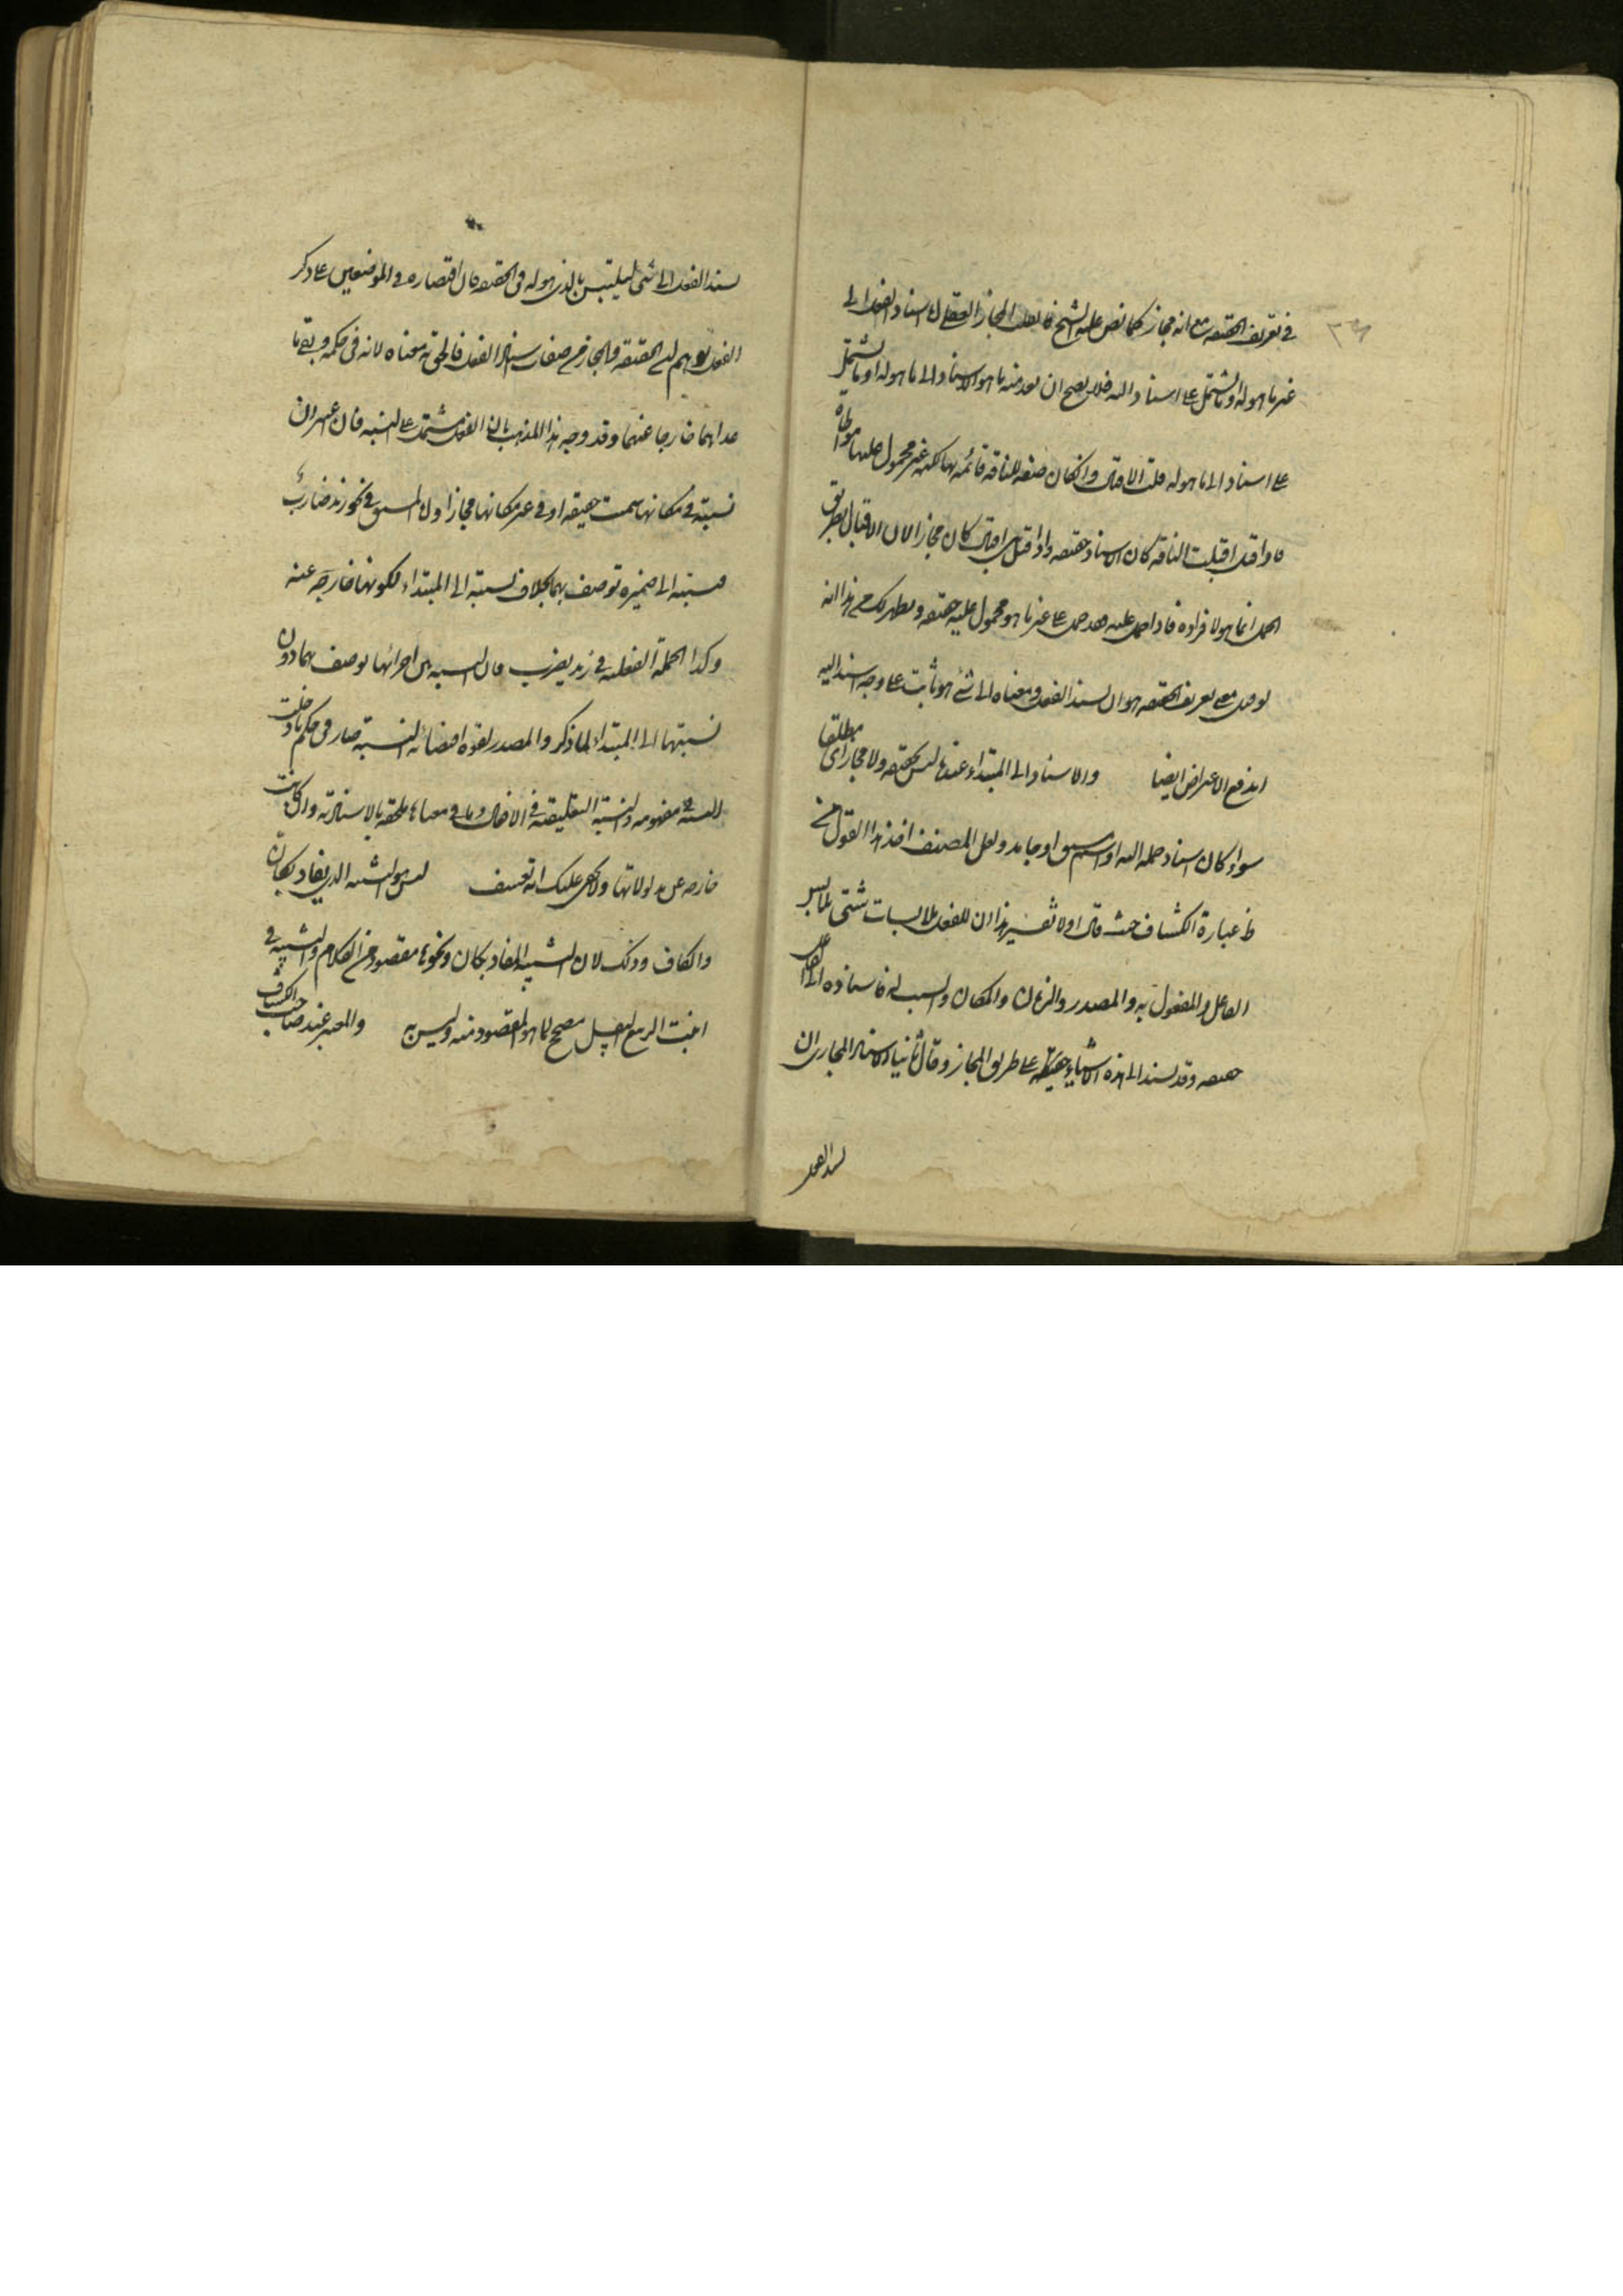 في تعريف الحقيقة مع انه مجاز كما نص عليه الشيخ فالعقلي المجاز العقلي له اسناد الفعل الى
غير ما هوله او ما يشتمل على اسناد اليه فلا يصح ان يعد منه ما هو الاسناد الى ما هوله او ما يشتمل
على اسناد الى ما هوله قلت الاقبال وان كان صفة للناقة قائمة بها لكنه غير محمول عليها مواطاة
فاذا قيل اقبلت الناقة كان الاسناد حقيقة واذا قيل هي اقبال كان مجازا لان الاقبال بطريق
الحمل انما هو لافراده فاذا حمل عليه فقد حمل على غير ما هو محمول عليه حقيقة ويظهر لك من هذا انه
لو قيل معنى تعريف الحقيقة هو ان يسند الفعل ومعناه الى شئ هو ثابت على وجه اسند اليه
اندفع الاعتراض ايضا والاسناد الى المبتداء عنده ليس بحقيقة ولا مجاز اى مطلقا
سواء كان اسناد جملة اليه او اسم مشتق او جامد ولعل المصنف اخذ هذا القول من
ظ عبارة الكشاف حيث قال اولا تفسير هذا ان للفعل ملابسات شتى يلابس
الفاعل والمفعول به والمصدر والزمان والمكان والسبب له فاسناده الى الفاعل
حقيقة وقد يسند الى هذه الاشياء على طريق المجاز وقال ثانيا الاسناد المجازى ان
يسند الفعل
يسند الفعل الى شئ يتلبس بالذى هو له في الحقيقة فان اقتصاره في الموضعين على ذكر
الفعل يوهم ان الحقيقة والمجاز من صفات اسناد الفعل فالحق به معناه لانه في حكمه وبقي ما
عداهما خارجا عنهما وقد وجه هذا المذهب بان الفعل مشتمل على النسبة فان اعتبر ان
نسبته في مكانها سميت حقيقة او في غير مكانها مجازا والمشتق في نحو زيد ضارب
نسبته الى ضميره توصف بهما بخلاف نسبته الى المبتداء لكونها خارجة عنه
وكذا الجملة الفعلية في زيد يضرب فان النسبة بين اجزائها توصف بهما دون
نسبتها الى المبتداء لما ذكر والمصدر لقوة اقتضائه النسبة صار في حكم ما دخلت
النسبة في مفهومه والنسبة التعليقية في الافعال وما في معناها ملحقة بالاسنادية وان كانت
خارجة عن مدلولاتها ولا يخفى عليك انه تعسف ليس هو التشبيه الذى يفاد بكان
والكاف وذلك لان التشبيه المفاد بكان ونحوها مقصود من الكلام والتشبيه في
انبت الربيع البقل مصحح لما هو المقصود منه وليس به والمعتبر عند صاحب الكشاف